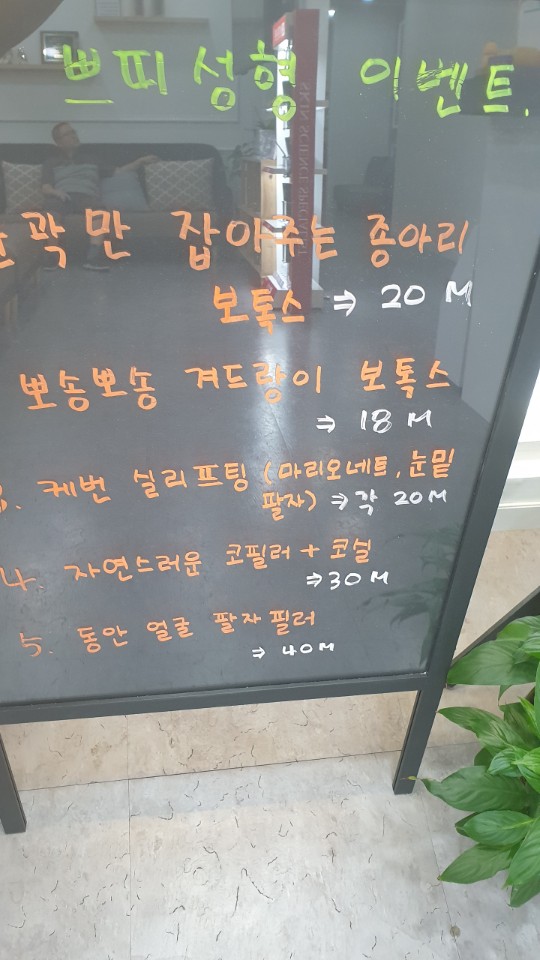 쁘띠성형 이벤트.
곽만 잡아주는 종아리
보톡스 ⇒ 20 M
뽀송뽀송 겨드랑이 보톡스
⇒ 18 M
3. 케번 실리프팅 (마리오네트, 눈밑
팔자) ⇒ 각 20 M
4. 자연스러운 코필러 + 코실
⇒ 30 M
5. 동안 얼굴 팔자 필러
⇒ 40 M
SKIN SCIENCE SPECIALIST